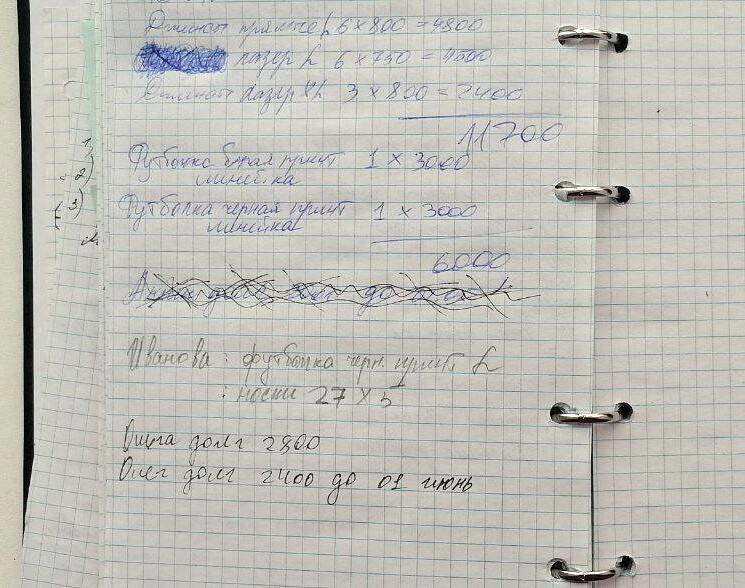 6 x 800 = 4800
лазер L 6 x 750 = 4500
лазер 3 x 800 = 2400
11700
Футболка белая принт 1 x 3000
линейка
Футболка черная принт 1 x 3000
линейка
6000
Иванова: футболка черн. принт L
: носки 27 x 5
долг 2800
Олег долг 2400 до 01 июнь